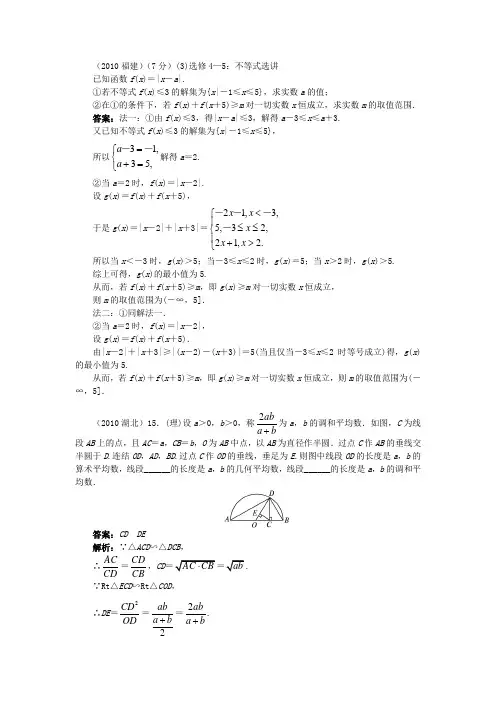 (2010福建)(7分)(3)选修4—5：不等式选讲
已知函数f(x)＝|x－a|.
①若不等式f(x)≤3的解集为{x|－1≤x≤5}，求实数a的值；
②在①的条件下，若f(x)＋f(x＋5)≥m对一切实数x恒成立，求实数m的取值范围．
答案：法一：①由f(x)≤3，得|x－a|≤3，解得a－3≤x≤a＋3.
又已知不等式f(x)≤3的解集为{x|－1≤x≤5}，
所以{a－3＝－1, a＋3＝5, 解得a＝2.
②当a＝2时，f(x)＝|x－2|.
设g(x)＝f(x)＋f(x＋5)，
于是g(x)＝|x－2|＋|x＋3|＝{－2x－1, x＜－3, 5, －3≤x≤2, 2x＋1, x＞2.
所以当x＜－3时，g(x)＞5；当－3≤x≤2时，g(x)＝5；当x＞2时，g(x)＞5.
综上可得，g(x)的最小值为5.
从而，若f(x)＋f(x＋5)≥m，即g(x)≥m对一切实数x恒成立，
则m的取值范围为(－∞，5]．
法二：①同解法一．
②当a＝2时，f(x)＝|x－2|，
设g(x)＝f(x)＋f(x＋5)．
由|x－2|＋|x＋3|≥|(x－2)－(x＋3)|＝5(当且仅当－3≤x≤2时等号成立)得，g(x)
的最小值为5.
从而，若f(x)＋f(x＋5)≥m，即g(x)≥m对一切实数x恒成立，则m的取值范围为(－
∞，5]．
(2010湖北)15．(理)设a＞0，b＞0，称2ab/(a＋b)为a，b的调和平均数．如图，C为线
段AB上的点，且AC＝a，CB＝b，O为AB中点，以AB为直径作半圆．过点C作AB的垂线交
半圆于D.连结OD，AD，BD.过点C作OD的垂线，垂足为E.则图中线段OD的长度是a，b的
算术平均数，线段______的长度是a，b的几何平均数，线段______的长度是a，b的调和平
均数．
D
E
A O C B
答案：CD DE
解析：∵△ACD∽△DCB，
∴AC/CD＝CD/CB，CD＝√(AC·CB)＝√(ab)．
∵Rt△ECD∽Rt△COD，
∴DE＝CD²/OD＝ab/((a＋b)/2)＝2ab/(a＋b)．